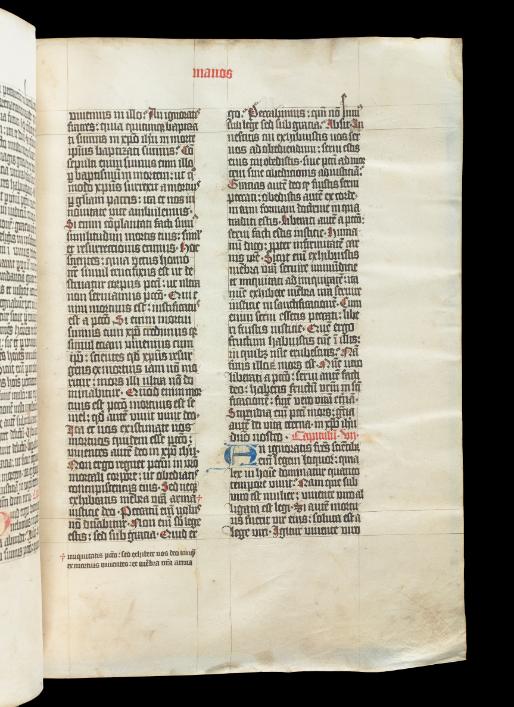 manos
viuemus in illo. An ignorat
fratres: quia quicumque baptiza
ti sumus in xpo ihu in morte
ipius baptizati sumus. Co
sepulti enim sumus cum illo
p baptismum in mortem: ut q
modo xpus surrexit a mortuis
p gliam patris: ita et nos in
nouitate vite ambulemus.
Si enim complantati facti sumus
similitudini mortis eius: simul
et resurrectionis erimus. Hoc
scientes: quia vetus homo
nr simul crucifixus est ut de
struatur corpus pcti: ut ultra
non seruiamus pcto. Qui e
nim mortuus est: iustificatus
est a pcto. Si enim mortui
sumus cum xpo credimus q
simul etiam viuemus cum
xpo: scientes qd xpus resur
gens ex mortuis iam non mo
ritur: mors illi ultra no do
minabitur. Quod enim mor
tuus est pcto mortuus est se
mel: qd aute viuit viuit deo.
Ita et vos existimate vos
mortuos quidem esse pcto:
viuentes aute deo in xpo ihu.
Non ergo regnet pctm in vro
mortali corpore: ut obediatis
concupiscentiis eius. Sed neq
exhibeatis membra vra arma
iusticie deo. Pctm enim vobis
no dnabitur. Non enim sub lege
estis: sed sub gratia. Quid er
+ iniquitatis pcto: sed exhibete vos deo tamq
ex mortuis viuentes: et membra vra arma
go. Peccabimus: qm no sumus
sub lege sed sub gratia. Absit. An
nescitis qm cui exhibuistis vos ser
uos ad obediendum: serui estis
eius cui obeditis: siue pcti ad mor
tem siue obedicionis ad iusticia.
Gracias aute deo q fuistis serui
peccati: obedistis aute ex corde
in eam formam doctrine in qua
traditi estis. Liberati aute a pcto:
serui facti estis iusticie. Huma
nu dico: propter infirmitate car
nis vre. Sicut enim exhibuistis
membra vra seruire inmundicie
et iniquitati ad iniquitate: ita
nunc exhibete membra vra seruire
iusticie in sanctificatione. Cum
enim serui essetis peccati: libe
ri fuistis iusticie. Quem ergo
fructum habuistis tunc in illis:
in quibus nunc erubescitis. Na
finis illor mors est. Nunc vero
liberati a pcto: serui aute facti
deo: habetis fructu vrm in sci
ficatione: fine vero vita eterna.
Stipendia eni pcti mors: gratia
aute dei vita eterna in xpo ihu
dno nostro. Capitulu. vii.
An ignoratis fres scientib
eni legem loquor: quia
lex in homine dominatur quanto
tempore viuit. Nam que sub
viro est mulier: viuente viro al
ligata est legi. Si aute mortu
us fuerit vir eius: soluta est a
lege viri. Igitur viuente viro